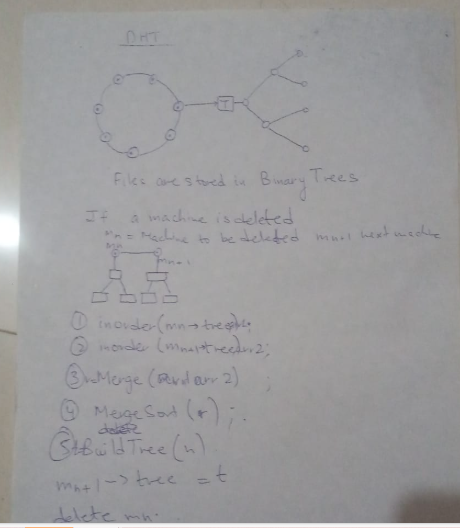 DHT
T
Files are stored in Binary Trees
If a machine is deleted
mn = Machine to be deleted mn+1 next machine
mn
mn+1
① inorder(mn→tree
② inorder (mn+1→tree)arr2;
③ Merge ( arr 2) ;
④ MergeSort ( ) ;
⑤ BuildTree(n)
mn+1 -> tree = t
delete mn.